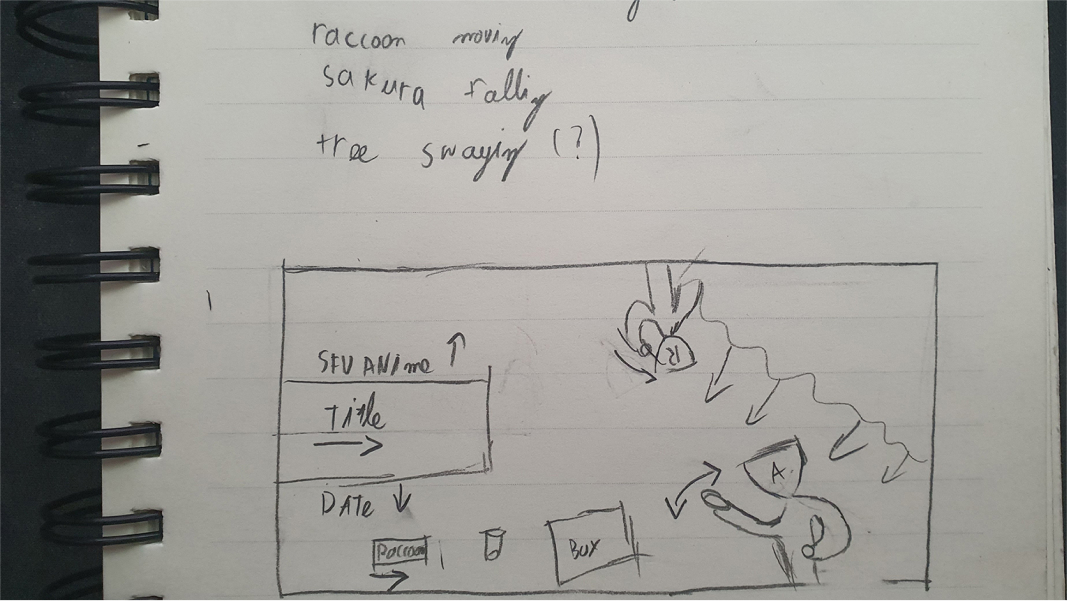 raccoon moving
sakura falling
tree swaying (?)
SFU ANIme
Title
R
DATE
A.
Raccoon
BOX